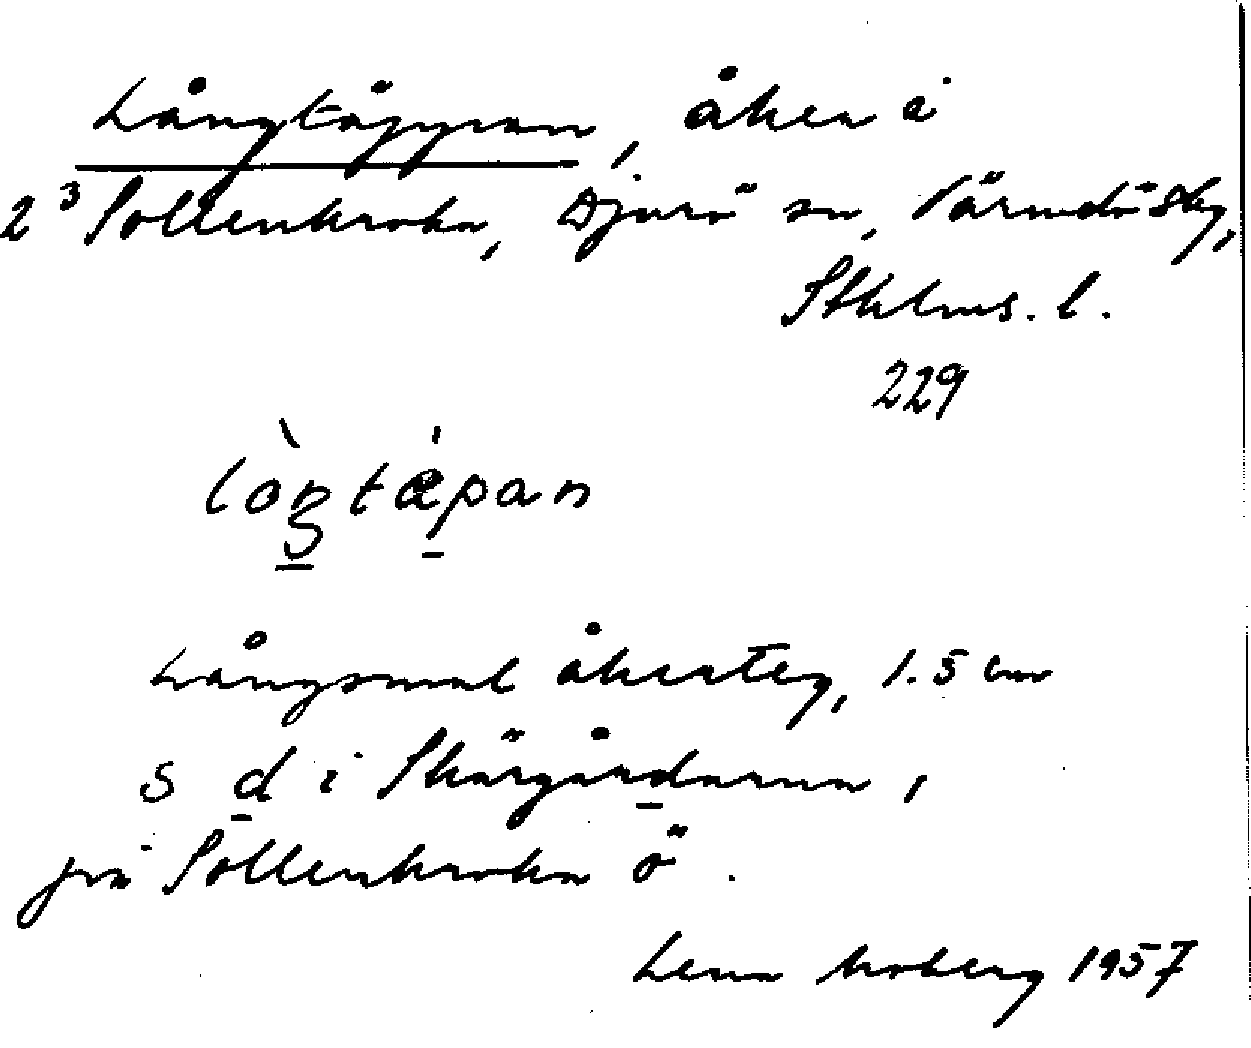 Långtäppan, åker i
2³ Sollenkroka, Djurö sn, Värmdö skg,
Sthlms. l.
229
lòŋtæ̀pan
Långsmal åkerteg, 1.5 cm
s d i Skärgårdarna,
på Sollenkroka ö.
Lena Moberg 1957